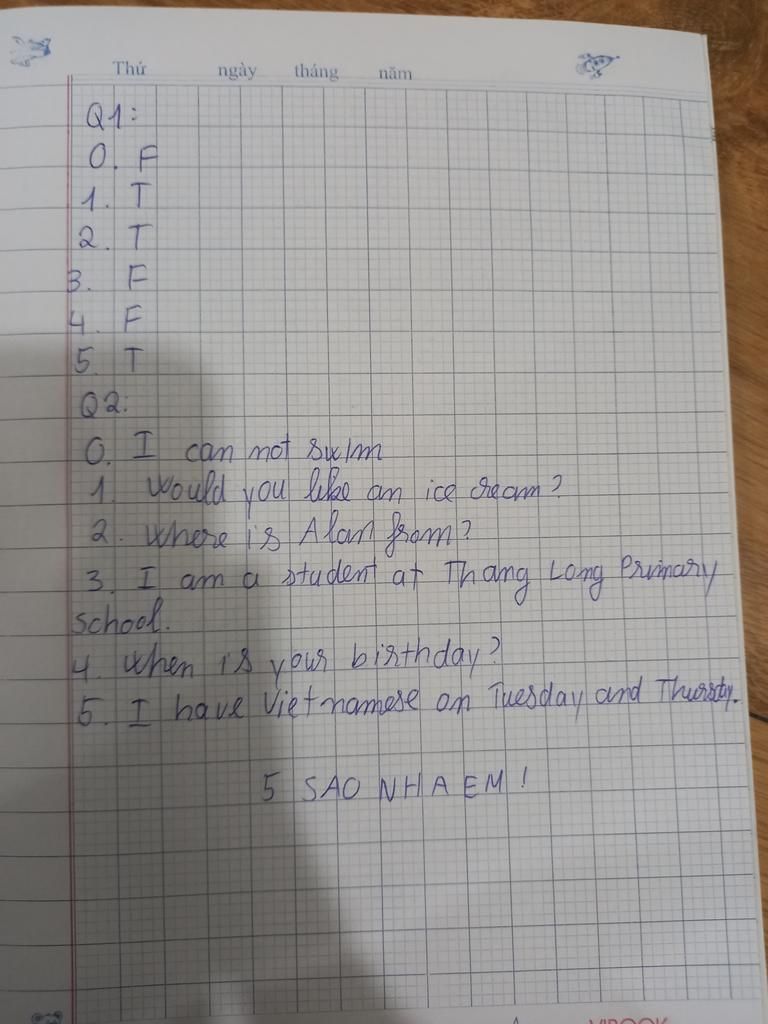 Thứ ngày tháng năm
Q1:
0. F
1. T
2. T
3. F
4. F
5. T
Q2:
0. I can not swim
1. Would you like an ice cream?
2. Where is Alan from?
3. I am a student at Thang Long Primary
school.
4. When is your birthday?
5. I have Vietnamese on Tuesday and
5 SAO NHA EM!